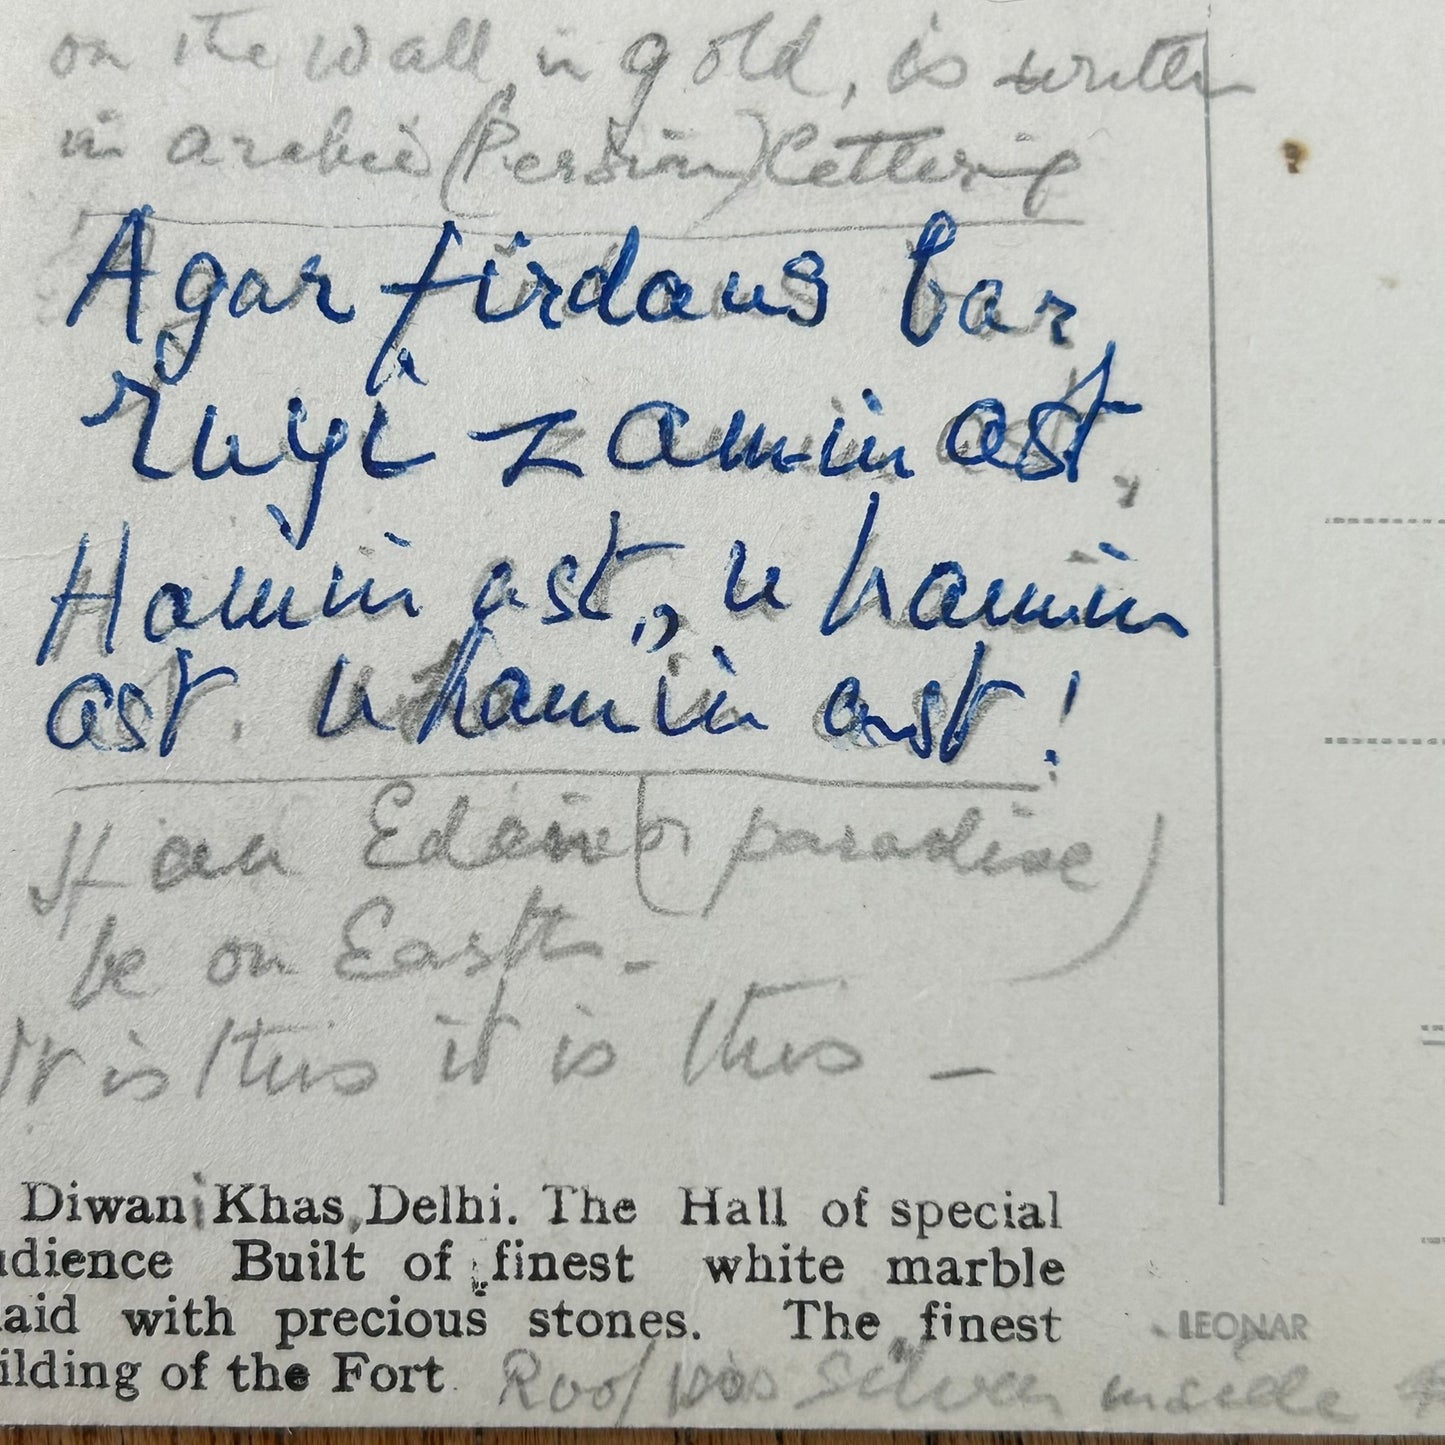 on the wall, in gold, is written
in arabic (Persian) lettering
Agar firdaus bar
ruyi zamin ast,
Hamin ast, u hamin
ast. u hamin ast!
If an Eden (or paradise)
be on Earth -
It is this it is this -
Diwan i Khas, Delhi. The Hall of special
udience Built of finest white marble
laid with precious stones. The finest
ilding of the Fort. Roof was silver inside
LEONAR